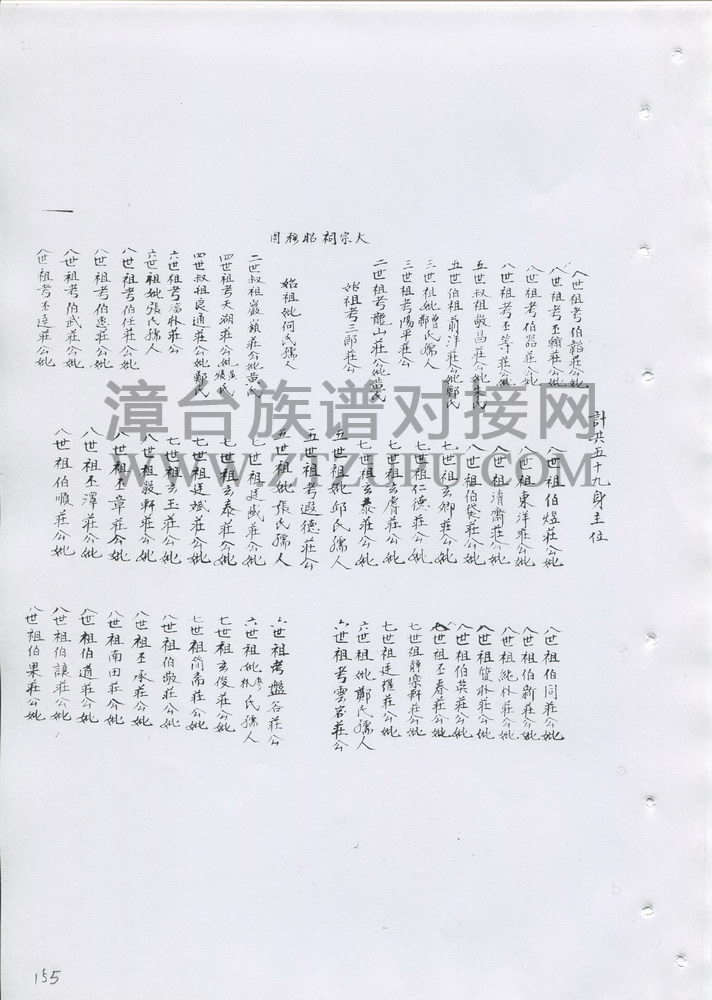 大宗祠昭穆圖
八世祖考伯韜莊公妣
八世祖考丕翰莊公妣
八世祖考伯器莊公妣
八世祖考丕等莊公妣
五世叔祖敬昌莊公妣朱氏
五世伯祖前洋莊公妣鄭氏
三世祖妣曾鄭氏孺人
三世祖考陽平莊公
二世祖考龍山莊公妣黃氏
始祖考三郎莊公
始祖妣何氏孺人
二世叔祖巖鎮莊公妣黃氏
四世祖考天湖莊公妣張氏
四世叔祖良通莊公妣鄭氏
六世祖考 林莊公
六世祖妣張氏孺人
八世祖考伯任莊公妣
八世祖考伯惠莊公妣
八世祖考伯武莊公妣
八世祖考丕達莊公妣
計共五十九身主位
八世祖伯煖莊公妣
八世祖東洋莊公妣
八世祖清齋莊公妣
八世祖伯岱莊公妣
七世祖玄卿莊公妣
七世祖仁德莊公妣
七世祖玄膚莊公妣
七世祖玄泰莊公妣
五世祖妣邱氏孺人
五世祖考遐德莊公
五世祖妣張氏孺人
七世祖廷威莊公妣
七世祖玄泰莊公妣
七世祖廷斌莊公妣
七世祖玄玉莊公妣
八世祖毅軒莊公妣
八世祖丕章莊公妣
八世祖丕澤莊公妣
八世祖伯順莊公妣
八世祖伯同莊公妣
八世祖伯新莊公妣
八世祖純林莊公妣
八世祖雙林莊公妣
八世祖伯英莊公妣
八世祖丕春莊公妣
七世祖靜樂軒莊公妣
七世祖廷擢莊公妣
六世祖妣鄭氏孺人
六世祖考雲岩莊公
六世祖考盤谷莊公
六世祖妣廖林氏孺人
七世祖玄俊莊公妣
七世祖簡南莊公妣
八世祖伯敬莊公妣
八世祖丕承莊公妣
八世祖南田莊公妣
八世祖伯道莊公妣
八世祖伯讓莊公妣
八世祖伯果莊公妣
漳台族谱对接网
WWW.ZTZUPU.COM
155